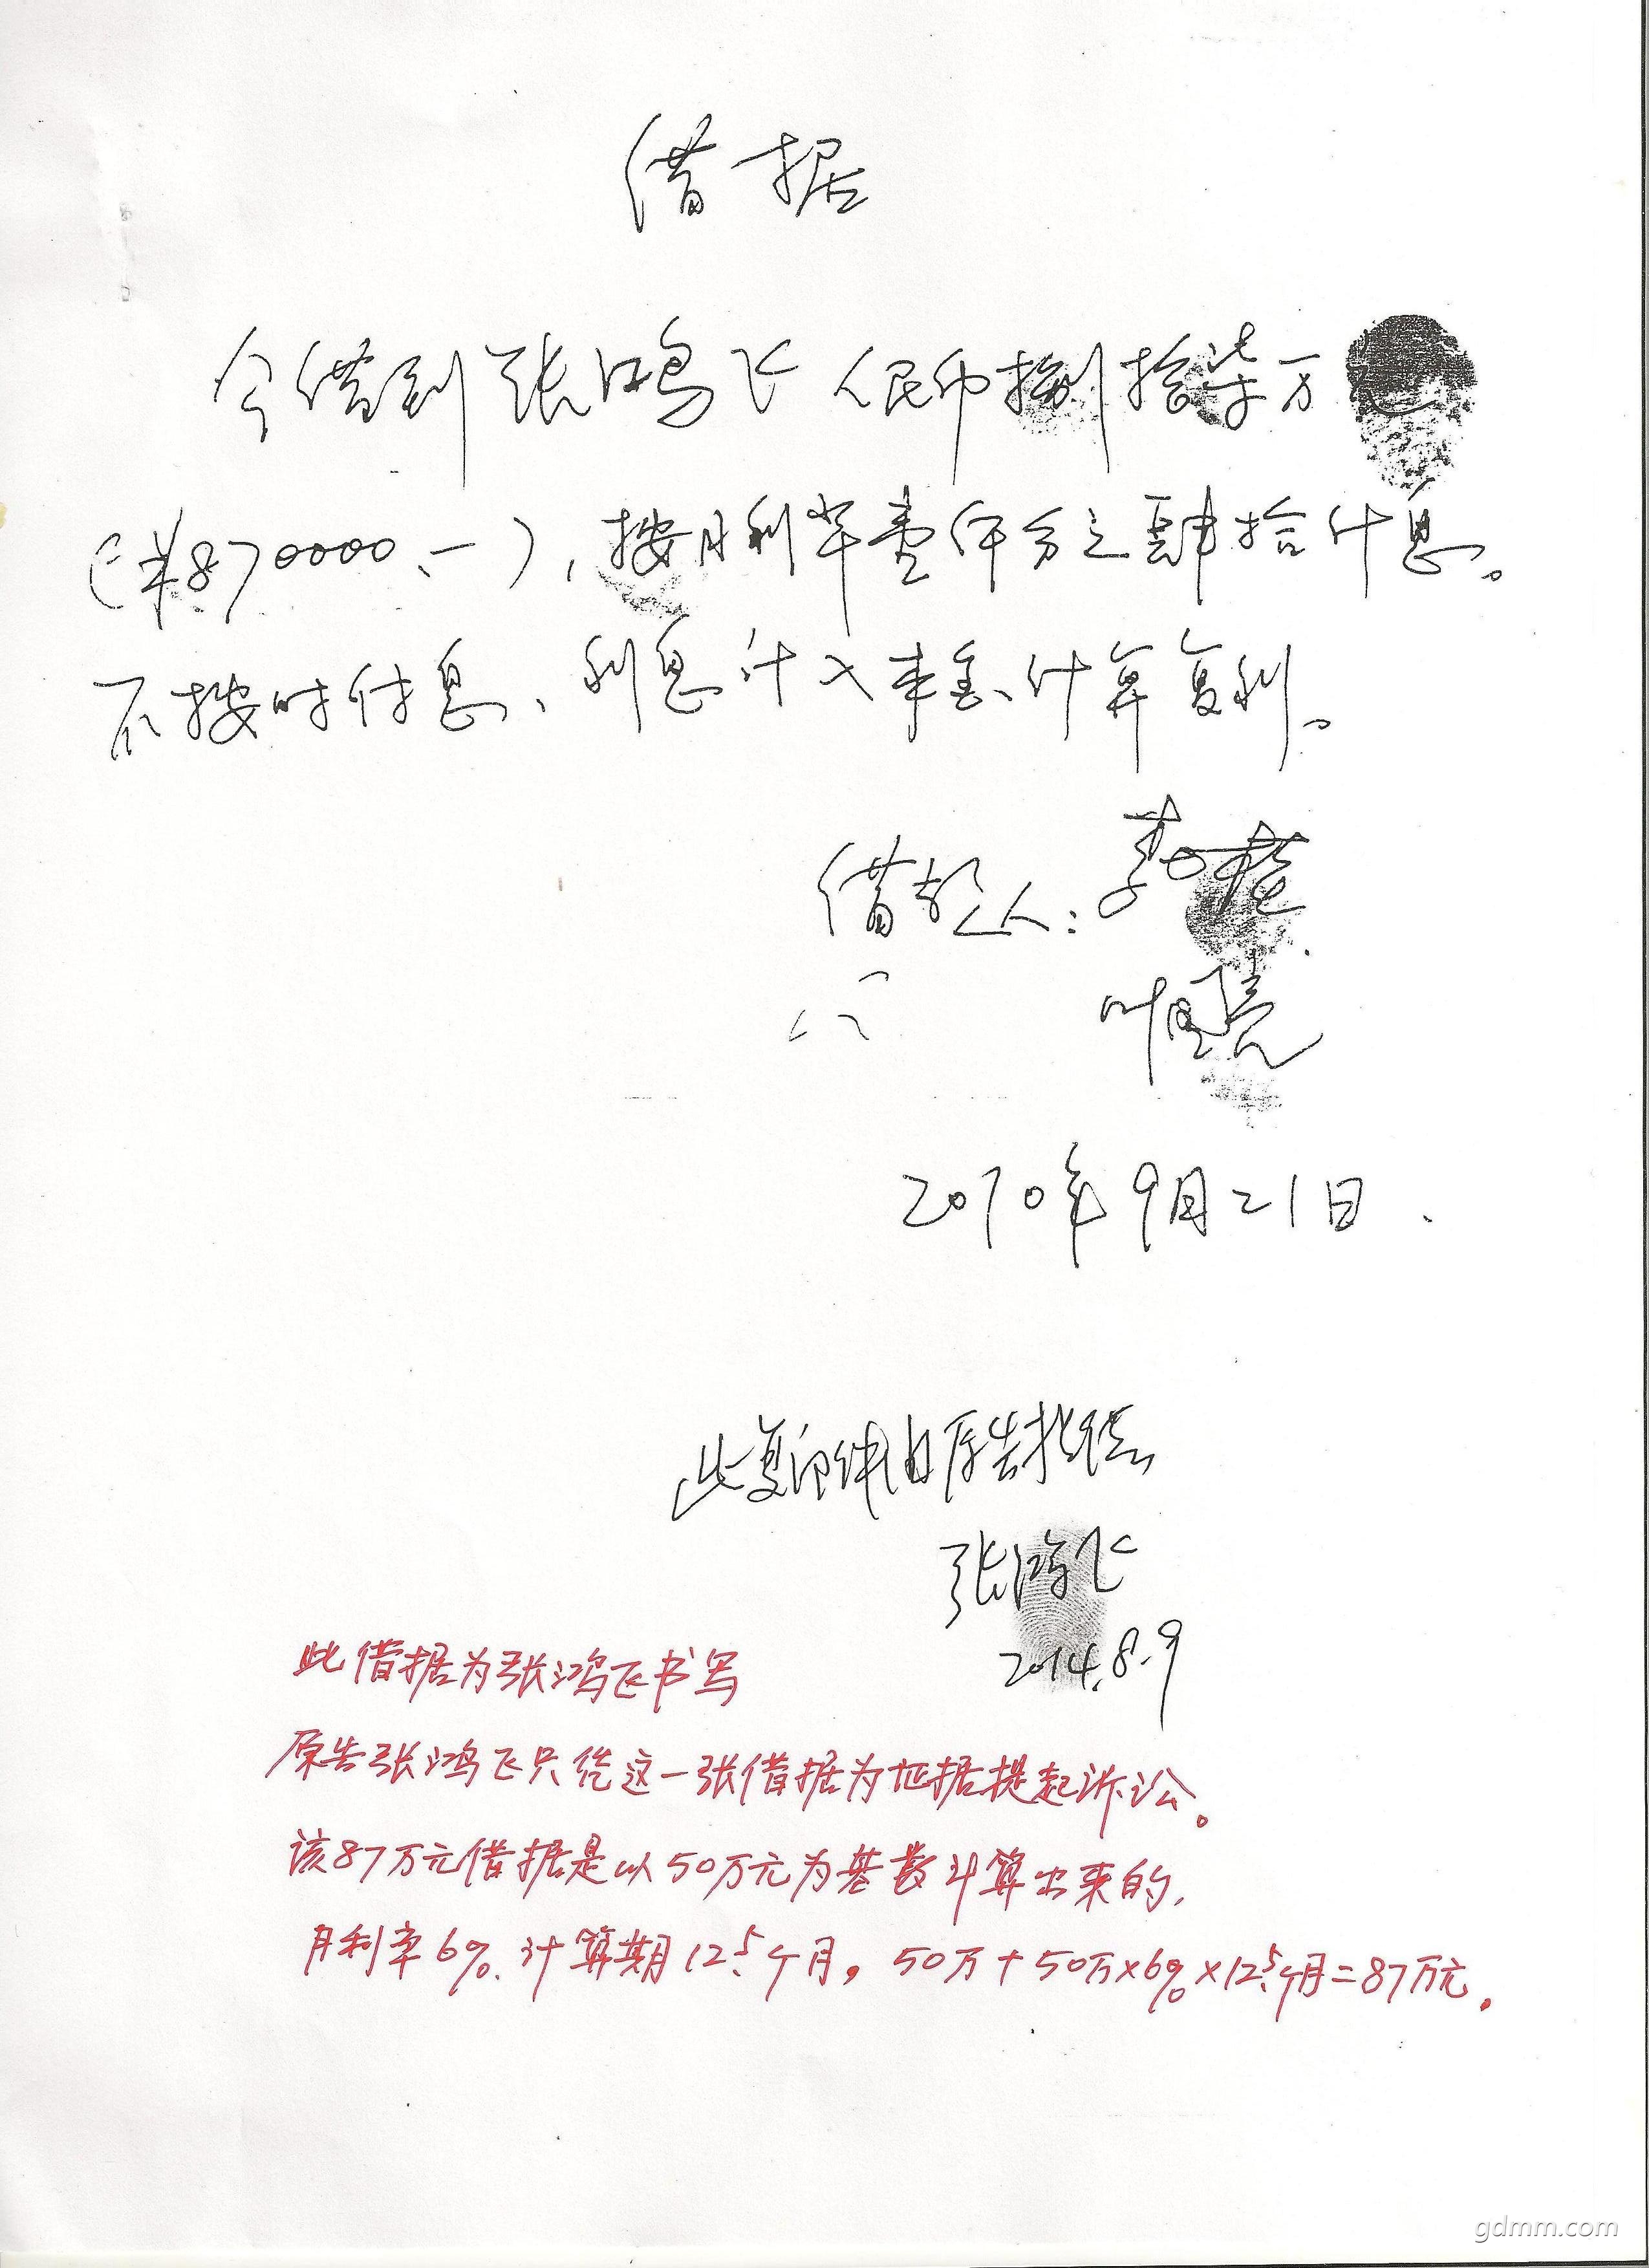 借据
今借到张鸿飞人民币捌拾柒万元
(¥870000、一),按月利率壹仟分之肆拾计息。
不按时付息、利息计入本金计算复利。
借款人:李
叶
2010年9月21日.
此复印件由原告提供
张鸿飞
2014.8.9
此借据为张鸿飞书写
原告张鸿飞只凭这一张借据为证据提起诉讼。
该87万元借据是以50万元为基数计算出来的,
月利率6%.计算期12.5个月。50万+50万×6%×12.5个月=87万元。
gdmm.com